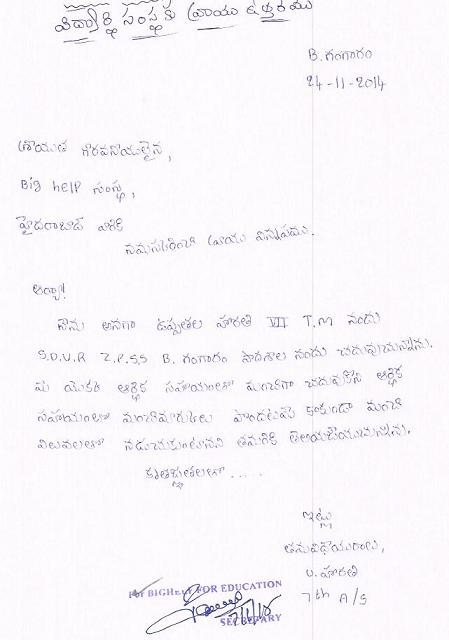 విద్యార్థి సంస్థకు వ్రాయు ఉత్తరము
B. గంగారం
24-11-2014
గౌరవనీయులైన,
Big help సంస్థ,
హైదరాబాద్ వారికి
నమస్కరించి వ్రాయు విన్నపము.
అయ్యా!
నేను అనగా ఉప్పుతల హారతి VII T.M నందు
S.D.V.R Z.P.S.S B. గంగారం పాఠశాల నందు చదువుచున్నాను.
మీ యొక్క ఆర్థిక సహాయంతో మంచిగా చదువుకొని ఆర్థిక
సహాయంతో మంచిమార్కులు పొందటమే కాకుండా మంచి
విలువలతో నడుచుకుంటానని తమరికి తెలియజేయుచున్నాను.
కృతజ్ఞతలతో .....
ఇట్లు
తమవిధేయురాలు,
U. హారతి
7th A/S
For BIGHELP FOR EDUCATION
SECRETARY